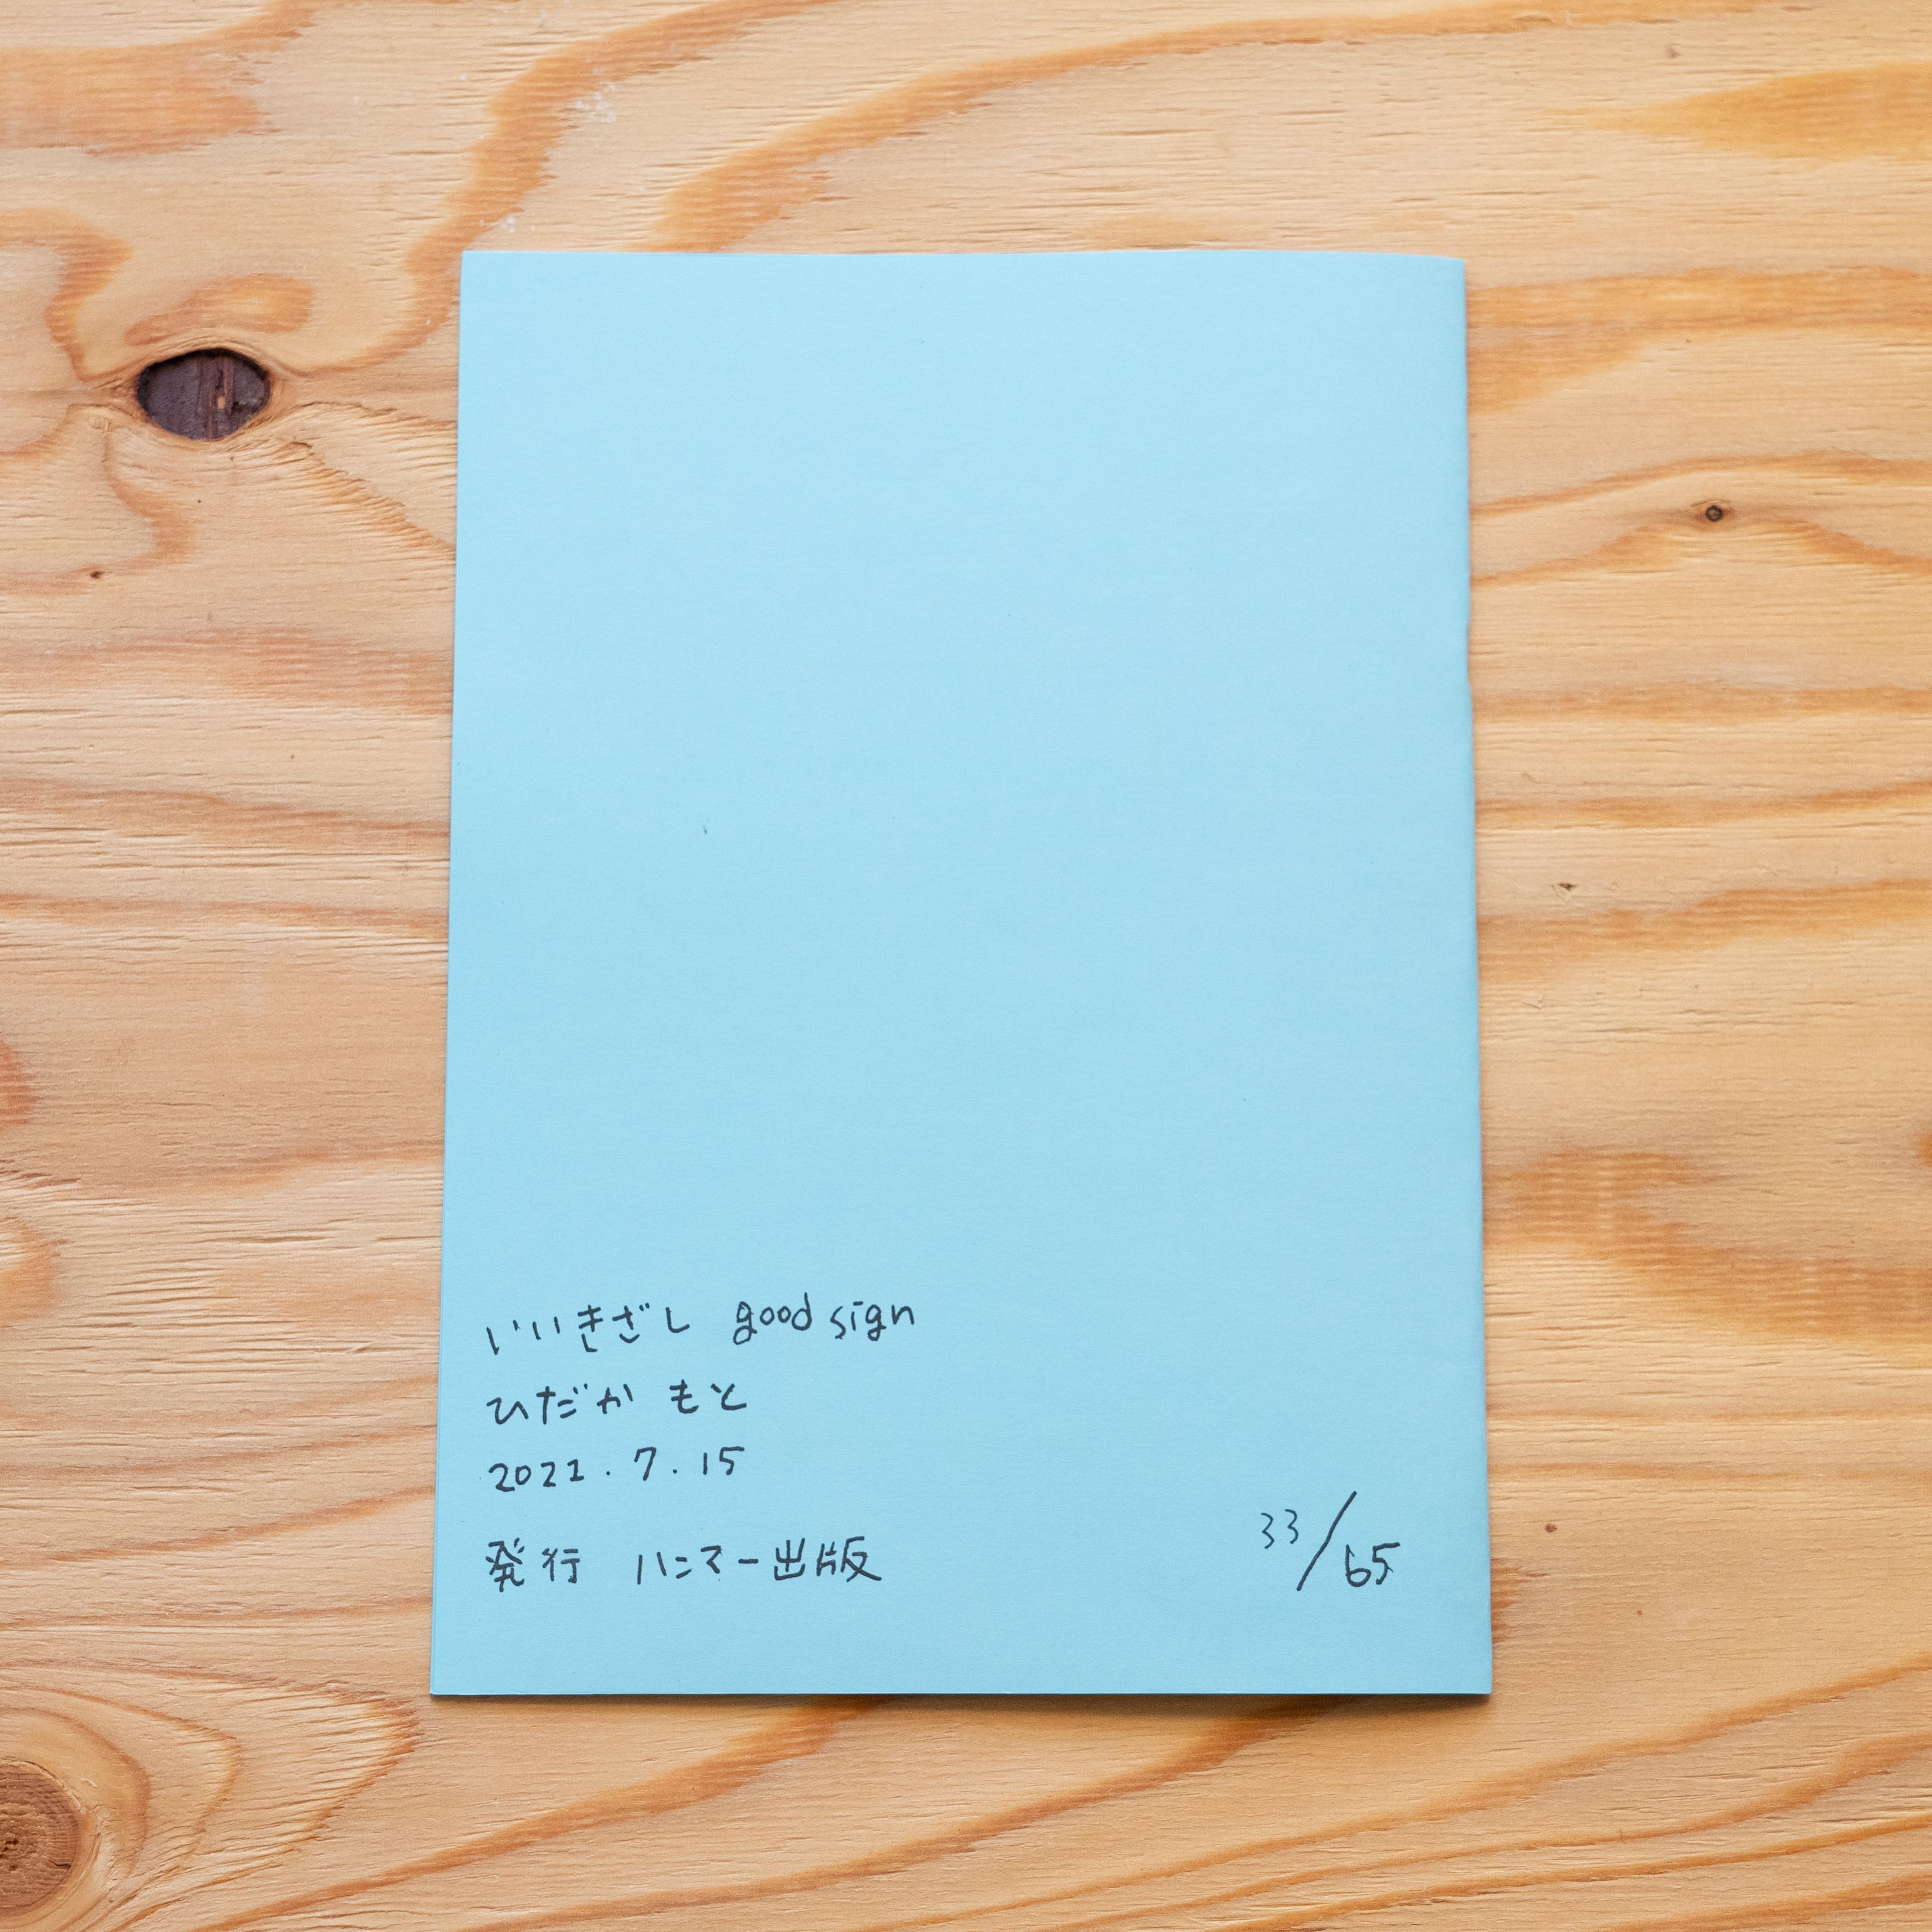 いいきざし good sign
ひだか もと
2021.7.15
発行 ハンマー出版
33/65